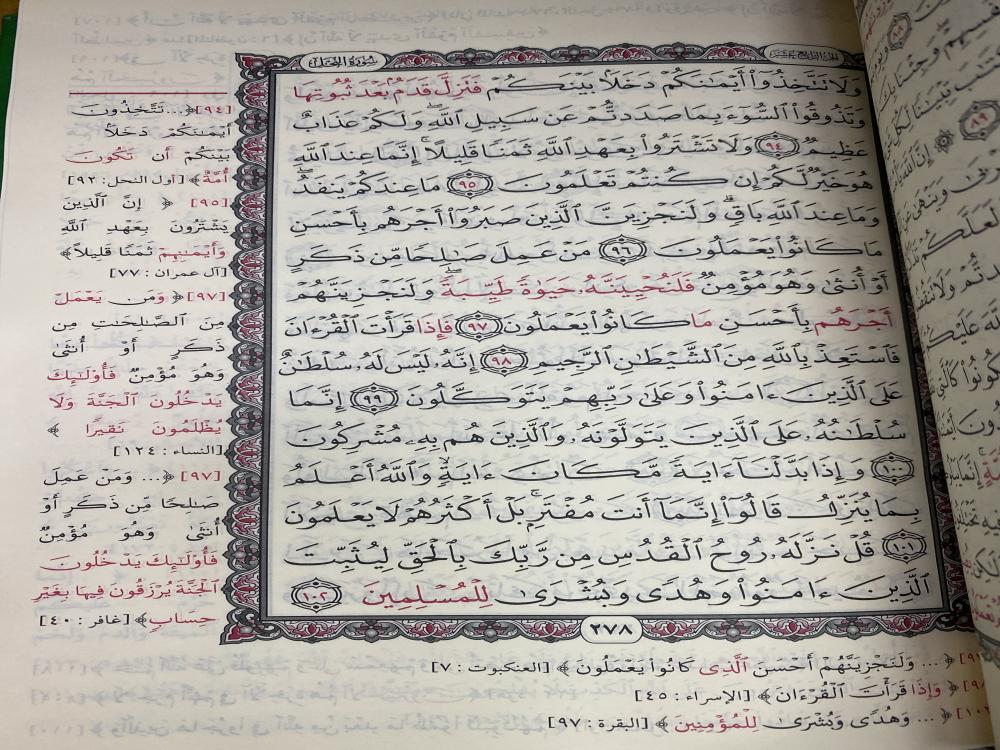 سُورَةُ النَّحْلِ
وَلَا تَتَّخِذُوٓا۟ أَيْمَٰنَكُمْ دَخَلًۢا بَيْنَكُمْ فَتَزِلَّ قَدَمٌۢ بَعْدَ ثُبُوتِهَا
وَتَذُوقُوا۟ ٱلسُّوٓءَ بِمَا صَدَدتُّمْ عَن سَبِيلِ ٱللَّهِ ۖ وَلَكُمْ عَذَابٌ
عَظِيمٌ ٩٤ وَلَا تَشْتَرُوا۟ بِعَهْدِ ٱللَّهِ ثَمَنًا قَلِيلًا ۚ إِنَّمَا عِندَ ٱللَّهِ
هُوَ خَيْرٌ لَّكُمْ إِن كُنتُمْ تَعْلَمُونَ ٩٥ مَا عِندَكُمْ يَنفَدُ ۖ
وَمَا عِندَ ٱللَّهِ بَاقٍ ۗ وَلَنَجْزِيَنَّ ٱلَّذِينَ صَبَرُوٓا۟ أَجْرَهُم بِأَحْسَنِ
مَا كَانُوا۟ يَعْمَلُونَ ٩٦ مَنْ عَمِلَ صَٰلِحًا مِّن ذَكَرٍ
أَوْ أُنثَىٰ وَهُوَ مُؤْمِنٌ فَلَنُحْيِيَنَّهُۥ حَيَوٰةً طَيِّبَةً ۖ وَلَنَجْزِيَنَّهُمْ
أَجْرَهُم بِأَحْسَنِ مَا كَانُوا۟ يَعْمَلُونَ ٩٧ فَإِذَا قَرَأْتَ ٱلْقُرْءَانَ
فَٱسْتَعِذْ بِٱللَّهِ مِنَ ٱلشَّيْطَٰنِ ٱلرَّجِيمِ ٩٨ إِنَّهُۥ لَيْسَ لَهُۥ سُلْطَٰنٌ
عَلَى ٱلَّذِينَ ءَامَنُوا۟ وَعَلَىٰ رَبِّهِمْ يَتَوَكَّلُونَ ٩٩ إِنَّمَا
سُلْطَٰنُهُۥ عَلَى ٱلَّذِينَ يَتَوَلَّوْنَهُۥ وَٱلَّذِينَ هُم بِهِۦ مُشْرِكُونَ
١٠٠ وَإِذَا بَدَّلْنَآ ءَايَةً مَّكَانَ ءَايَةٍ ۙ وَٱللَّهُ أَعْلَمُ
بِمَا يُنَزِّلُ قَالُوٓا۟ إِنَّمَآ أَنتَ مُفْتَرٍۭ ۚ بَلْ أَكْثَرُهُمْ لَا يَعْلَمُونَ
١٠١ قُلْ نَزَّلَهُۥ رُوحُ ٱلْقُدُسِ مِن رَّبِّكَ بِٱلْحَقِّ لِيُثَبِّتَ
ٱلَّذِينَ ءَامَنُوا۟ وَهُدًى وَبُشْرَىٰ لِلْمُسْلِمِينَ ١٠٢
٢٧٨
[٩٤] ﴿... تَتَّخِذُونَ
أَيْمَٰنَكُمْ دَخَلًۢا
بَيْنَكُمْ أَن تَكُونَ
أُمَّةٌ﴾ [أول النحل: ٩٢]
[٩٥] ﴿ إِنَّ ٱلَّذِينَ
يَشْتَرُونَ بِعَهْدِ ٱللَّهِ
وَأَيْمَٰنِهِمْ ثَمَنًا قَلِيلًا﴾
[آل عمران: ٧٧]
[٩٧] ﴿ وَمَن يَعْمَلْ
مِنَ ٱلصَّٰلِحَٰتِ مِن
ذَكَرٍ أَوْ أُنثَىٰ
وَهُوَ مُؤْمِنٌ فَأُو۟لَٰٓئِكَ
يَدْخُلُونَ ٱلْجَنَّةَ وَلَا
يُظْلَمُونَ نَقِيرًا ﴾
[النساء: ١٢٤]
[٩٧] ﴿ ... وَمَنْ عَمِلَ
صَٰلِحًا مِّن ذَكَرٍ أَوْ
أُنثَىٰ وَهُوَ مُؤْمِنٌ
فَأُو۟لَٰٓئِكَ يَدْخُلُونَ
ٱلْجَنَّةَ يُرْزَقُونَ فِيهَا بِغَيْرِ
حِسَابٍ﴾ [غافر: ٤٠]
﴿ ... وَلَنَجْزِيَنَّهُمْ أَحْسَنَ ٱلَّذِى كَانُوا۟ يَعْمَلُونَ ﴾ [العنكبوت: ٧]
﴿ وَإِذَا قَرَأْتَ ٱلْقُرْءَانَ ﴾ [الإسراء: ٤٥]
﴿ ... وَهُدًى وَبُشْرَىٰ لِلْمُؤْمِنِينَ ﴾ [البقرة: ٩٧]